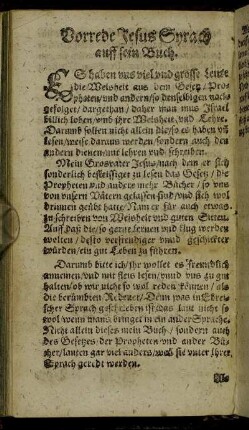 Vorrede Jesus Syrach
auff sein Buch.
ES haben vns viel vnd grosse Leute
die Weisheit aus dem Gesetz/ Pro-
pheten/ vnd andern/ so denselbigen nach
gefolget/ dargethan/ daher man mus Jsrael
billich loben/ vmb jhre Weisheit/ vnd Lehre.
Darumb sollen nicht allein die/ so es haben vñ
lesen/ weise daraus werden/ sondern auch den
andern dienen/ mit lehren vnd schreiben.
Mein Grosvater Jesus/ nach dem er sich
sonderlich beflissiget zu lesen das Gesetz/ die
Propheten vnd andere mehr Bücher/ so vns
von vnsern Vätern gelassen sind/ vnd sich wol
drinnen geübt hatte/ Nam er für auch etwas
zu schreiben von Weisheit vnd guten Sitten.
Auff das die/ so gerne lernen vnd klug werden
wolten/ desto verstendiger vnd geschickter
würden/ ein gut Leben zu führen.
Darumb bitte ich/ jhr wollet es freundlich
annemen/ vnd mit fleis lesen/ vnd vns zu gut
halten/ ob wir nicht so wol reden können/ als
die berümbten Redener/ Denn was in Ebrei-
scher Sprach geschrieben ist/ das laut nicht so
wol/ wenn mans bringet in ein ander Sprache.
Nicht allein dieses mein Buch/ sondern auch
des Gesetzes/ der Propheten vnd ander Bü-
cher/ lauten gar viel anders/ was sie vnter jhrer
Sprach geredt werden.